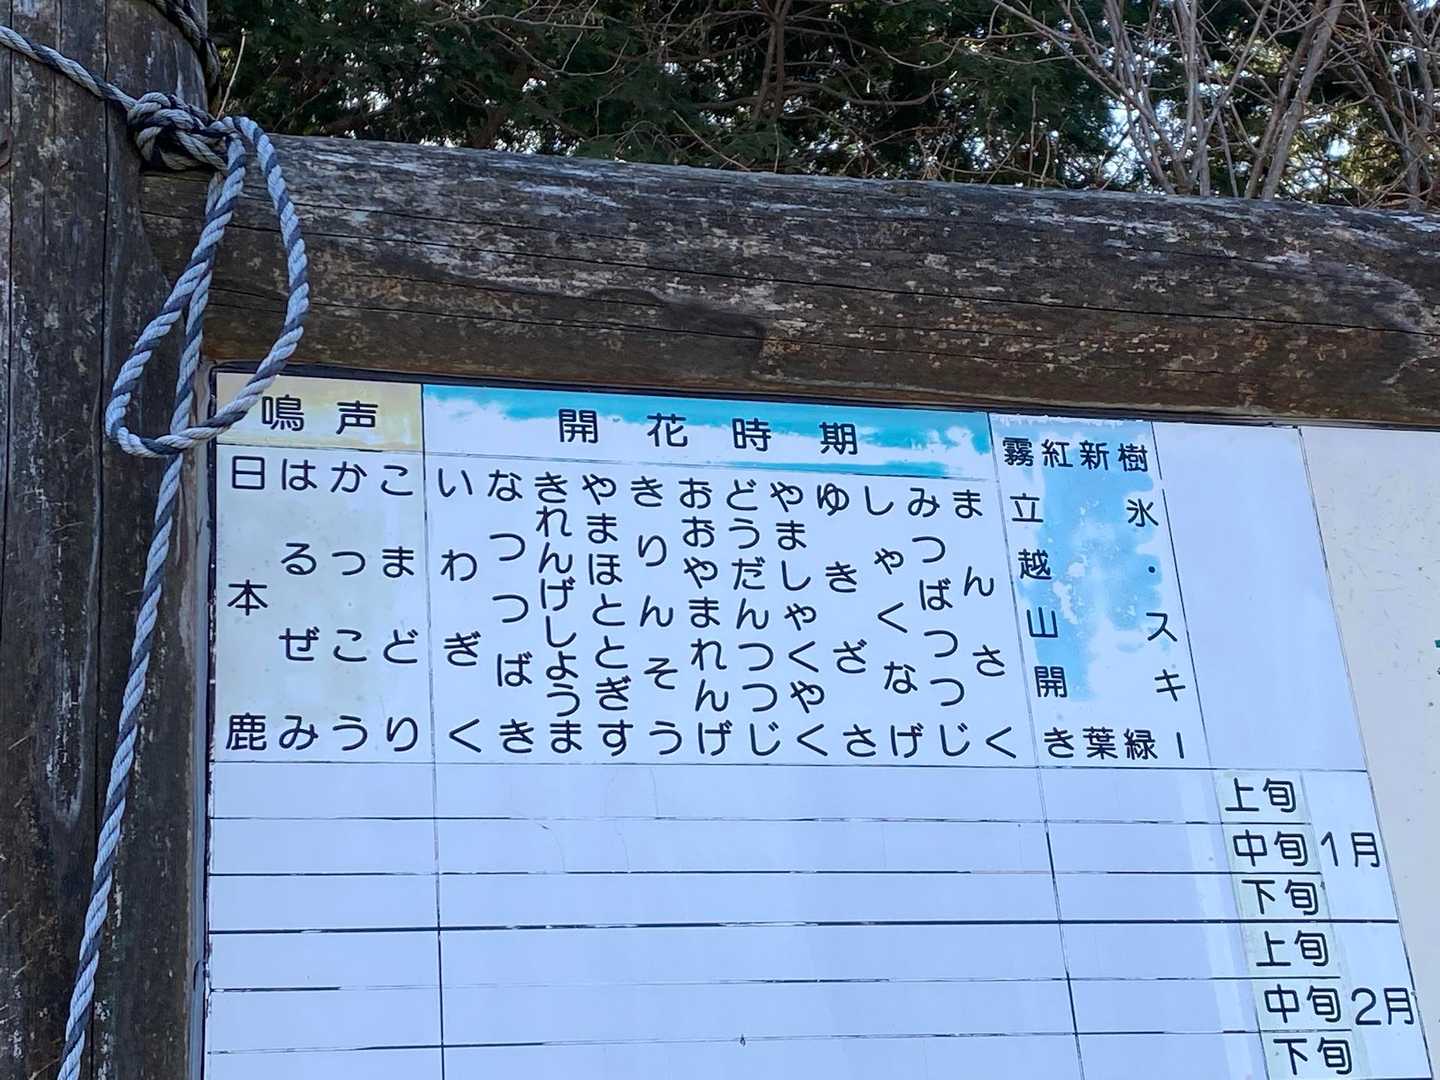 樹氷・スキー
新緑
紅葉
霧立越山開き
開花時期
まんさく
みつばつつじ
しゃくなげ
ゆきざさ
やましゃくやく
どうだんつつじ
おおやまれんげ
きりんそう
やまほととぎす
きれんげしょうま
なつつばき
いわぎく
鳴声
こまどり
かっこう
はるぜみ
日本鹿
1月
上旬
中旬
下旬
2月
上旬
中旬
下旬